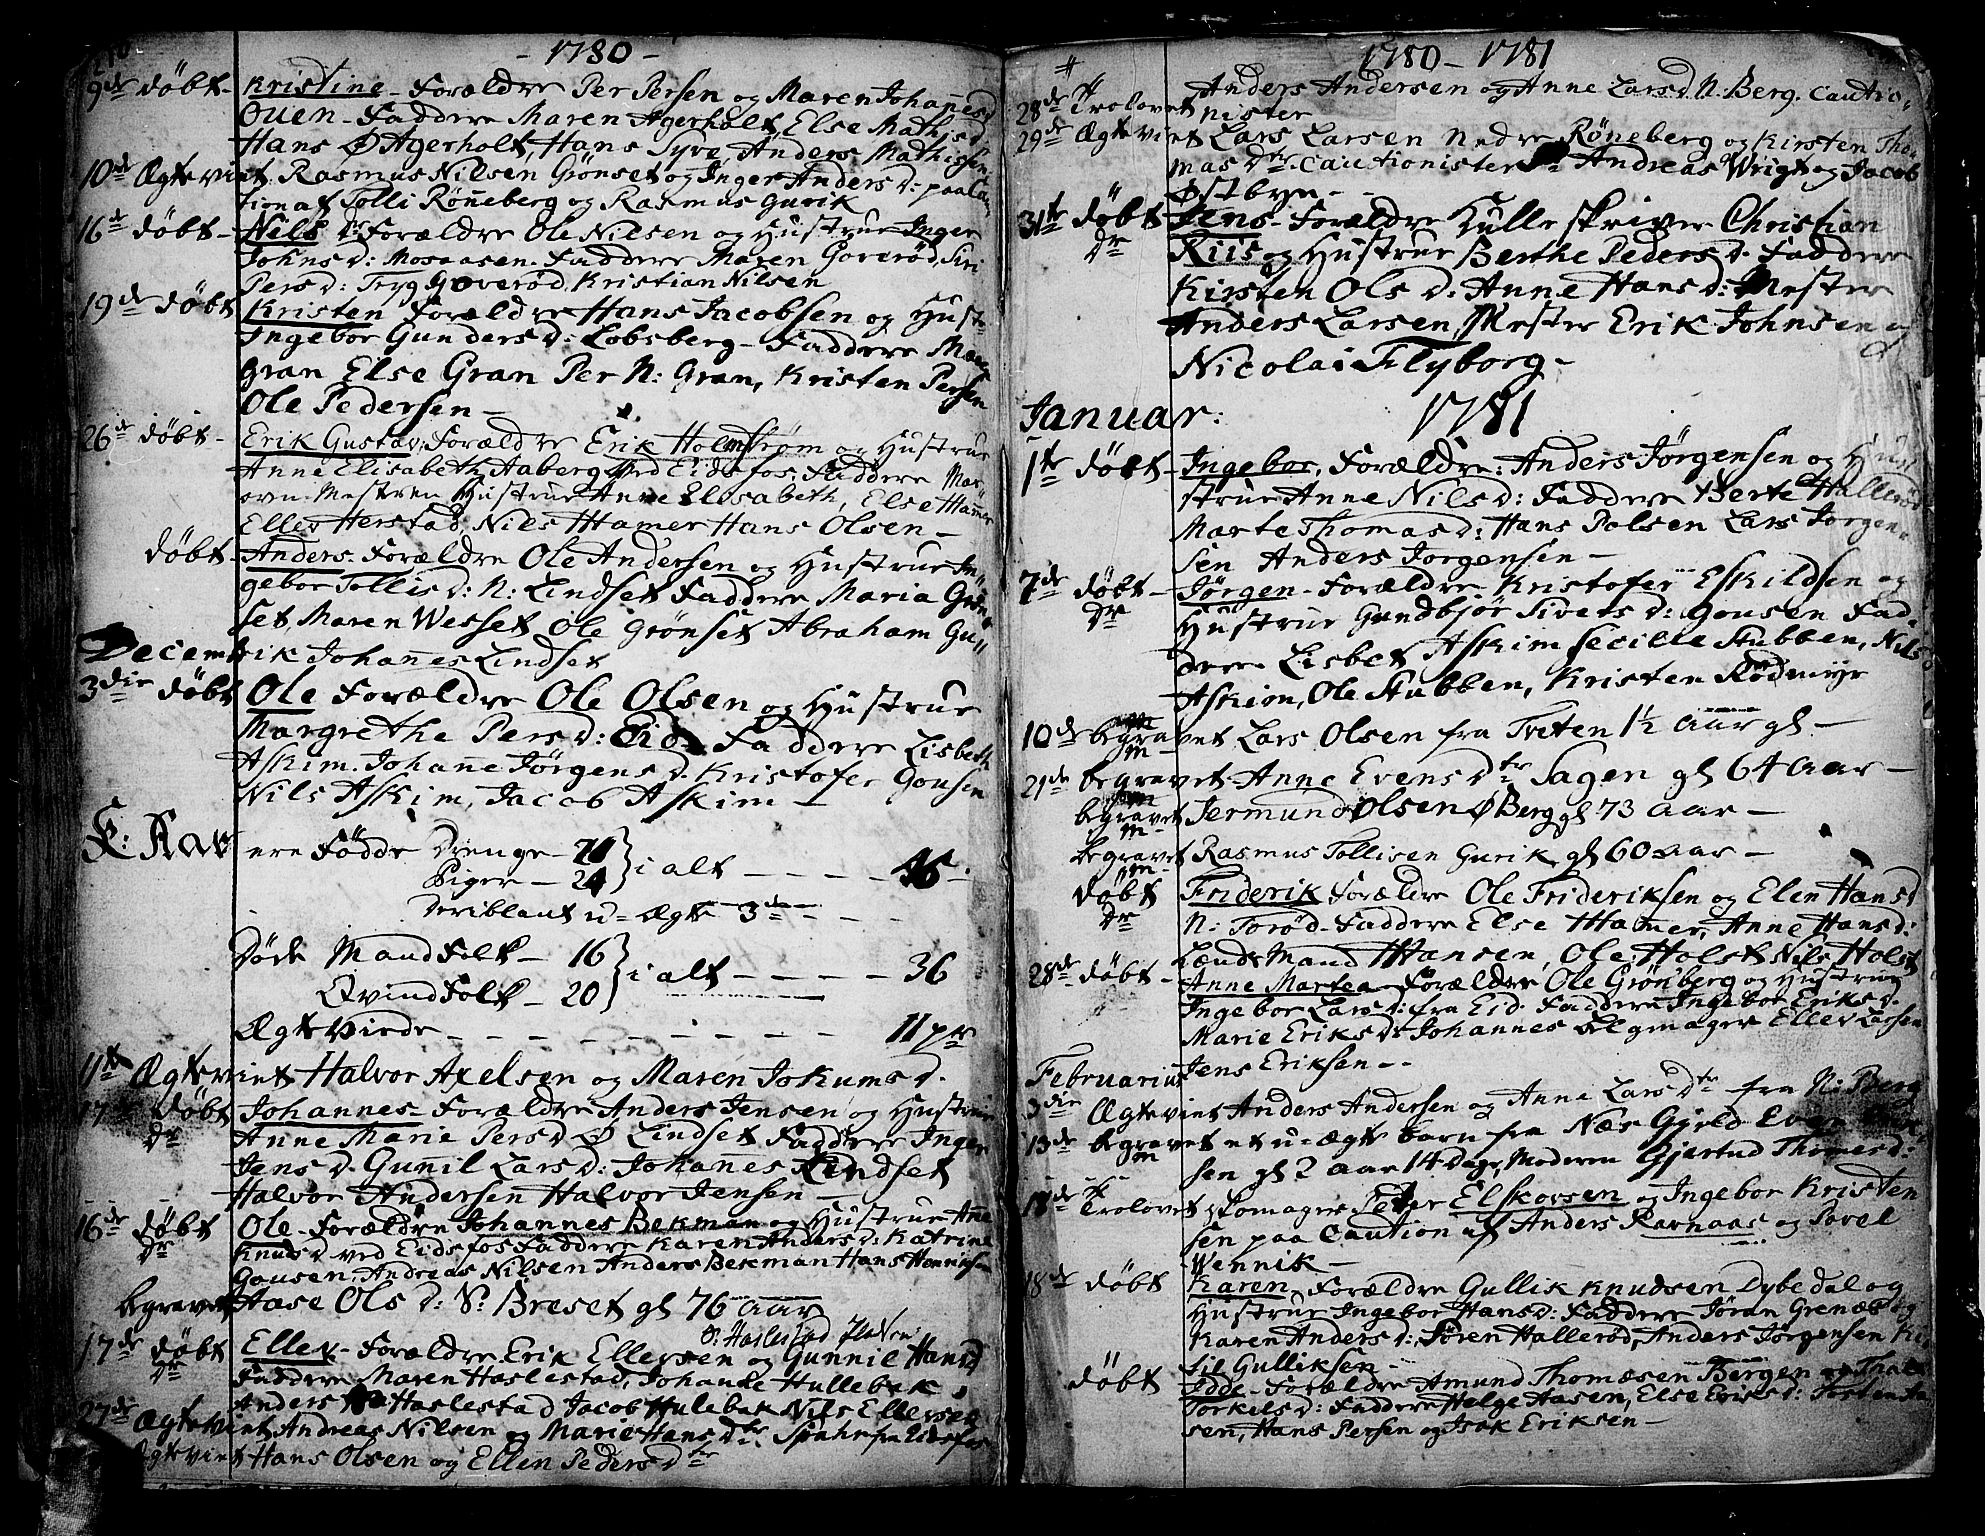 - 1780 -
9de döbt - Kristine - Forældre Per Persen og Maren Johanesd
Ouen - Faddere Maren Agerholt, Else Mathisd
Hans Ø Agerholt, Hans Syve Anders Mathissen
10de Ægteviet Rasmus Nilsen Grönset og Inger Anders D: paa Cau
tion af Tolli Röneberg og Rasmus Gurik
16de döbt - Nils Forældre Ole Nilsen og Hustrue Inger
Johns D: Mosaasen. Faddere Maren Goverød, Siri
Pers D: Tryg Goverød, Kristian Nilsen
19de döbt Kristen Forældre Hans Jacobsen og Hust:
Ingebor Gunders D: Lobsberg - Faddere Maren
Gran Else Gran Per N: Gran, Kristen Persen
Ole Pedersen -
26de döbt - Erik Gustav: Forældre Erik Holmstrøm og Hustrue
Anne Elisabeth Aaberg ved Eidsfos. Faddere Mas
ovn Mestren Hustrue Anne Elisabeth, Else Hamer
Ellev Herstad, Nils Hamer Hans Olsen -
döbt - Anders - Forældre Ole Andersen og Hustrue In
gebor Tollis D: N: Lindset Faddere Maria Grön
set, Maren Wesset Ole Grönset Abraham Gu
Decem rik Johanes Lindset
3die döbt Ole Forældre Ole Olsen og Hustrue
Margrethe Pers D: Eid - Faddere Lisbeth
Askim. Johane Jörgens D. Kristofer Gousen
Nils Askim, Jacob Askim -
K: Aar ere Födde Drenge -
Piger - 24 } i alt - - - - 46 -
Deriblant u-Ægte 3de - -
Döde Mandfolk - 16
Qvindfolk - 20 } i alt - - - - 36
Ægteviede - - - - - - - 11 pr
11te Ægteviet Halvor Axelsen og Maren Jokums D.
17de döbt Johannes - Forældre Anders Jensen og Hustrue
Dr Anne Marie Pers D Ø Lindset Faddere Inger
Jens D. Gunil Lars D: Johanes Lindset
Halvor Andersen Halvor Jensen -
16de döbt Ole - Forældre Johannes Bekman og Hustrue Ane
Dr Knuds D ved Eidsfos Faddere Karen Anders D: Katrine
Gousen, Andreas Nilsen Anders Bekman Hans Henriksen
begravet, Aase Ols D: N: Breset gl 76 aar
17de döbt Ellev - Forældre Erik Ellevsen og Gunnil Hansd
Dr Faddere Maren Haslestad, Johanne Hullebak
Anders Haslestad Jacob Hulebak Nils Ellevsen
27de Ægteviet Andreas Nilsen og Marie Hans Dtr Spahr fra Eidsfos
Ægteviet Hans Olsen og Ellen Peders Dtr
1780 - 1781
28de Trolovet Anders Andersen og Anne Larsd N. Berg. Cautio-
nister
29de Ægteviet Lars Larsen Nedre Röneberg og Kirsten Tho-
mas Dtr. Cautionister Andreas Wrigt og Jacob
Østbyn - -
31te döbt Jens - Forældre Hytteskriver Christian
Dr Riis og Hustrue Berthe Peders D. Faddere
Kirsten Ols D: Anne Hans D: Mester
Anders Larsen, Mester Erik Johnsen og
Nicolai Flyborg -
Januar: 1781
1te döbt - Ingebor, Forældre: Anders Jörgensen og Hu
strue Anne Nils D: Faddere Berte Hallerød
Marte Thomas D: Hans Polsen Lars Jorgen
sen Anders Jorgensen -
7de döbt - Jörgen - Forældre Kristofer Eskildsen og
Dr Hustrue Gundbjör Sivers D: Gousen Fad
dere Lisbet Askim Secille Stubben, Nils
Askim, Ole Stubben, Kristen Rødmyr
10de begravet Lars Olsen fra Treten 1½ aar gl -
21de begravet - Anne Evens Dtr Sagen gl 64 aar -
begravet Jermund Olsen Ø Berg gl 73 aar -
begravet Rasmus Tollisen Gurik gl 60 aar -
döbt Friderik Forældre Ole Frideriksen og Elen Hansd
Dr N: Torød - Faddere Else Hamer, Anne Hansd:
Lændsmand Hansen, Ole Holst Nils Holst
28de döbt - Anne Martea - Forældre Ole Grönberg og Hustrue
Ingebor Lars D: fra Eid. Faddere Ingebor Eriks D.
Marie Eriks D. Johannes Belgmager Ellev Larsen
Jens Eriksen -
Februarius
3die Ægteviet Anders Andersen og Anne Lars Dtr fra N: Berg
13de begravet et u-ægte barn fra Næs Gjeld Even
sen gl 2 aar 14 Dage, Moderen Gjertud Thomesd:
18de Trolovet Skomager Peter Elskovsen og Ingebor Kristen
sen paa Caution af Anders Ravnaas og Povel
Wennik -
18de döbt Karen Forældre Gullik Knudsen Dybedal og
Hustrue Ingebor Hans D: Faddere Jøran Grenes og
Karen Anders D: Søren Hallerød, Anders Jörgensen
Gulliksen -
döbt Forældre Amund Thomæsen Bergen og
Torkils D: Faddere Helge Aasen, Else Eriks D:
sen, Hans Persen og Isak Eriksen -